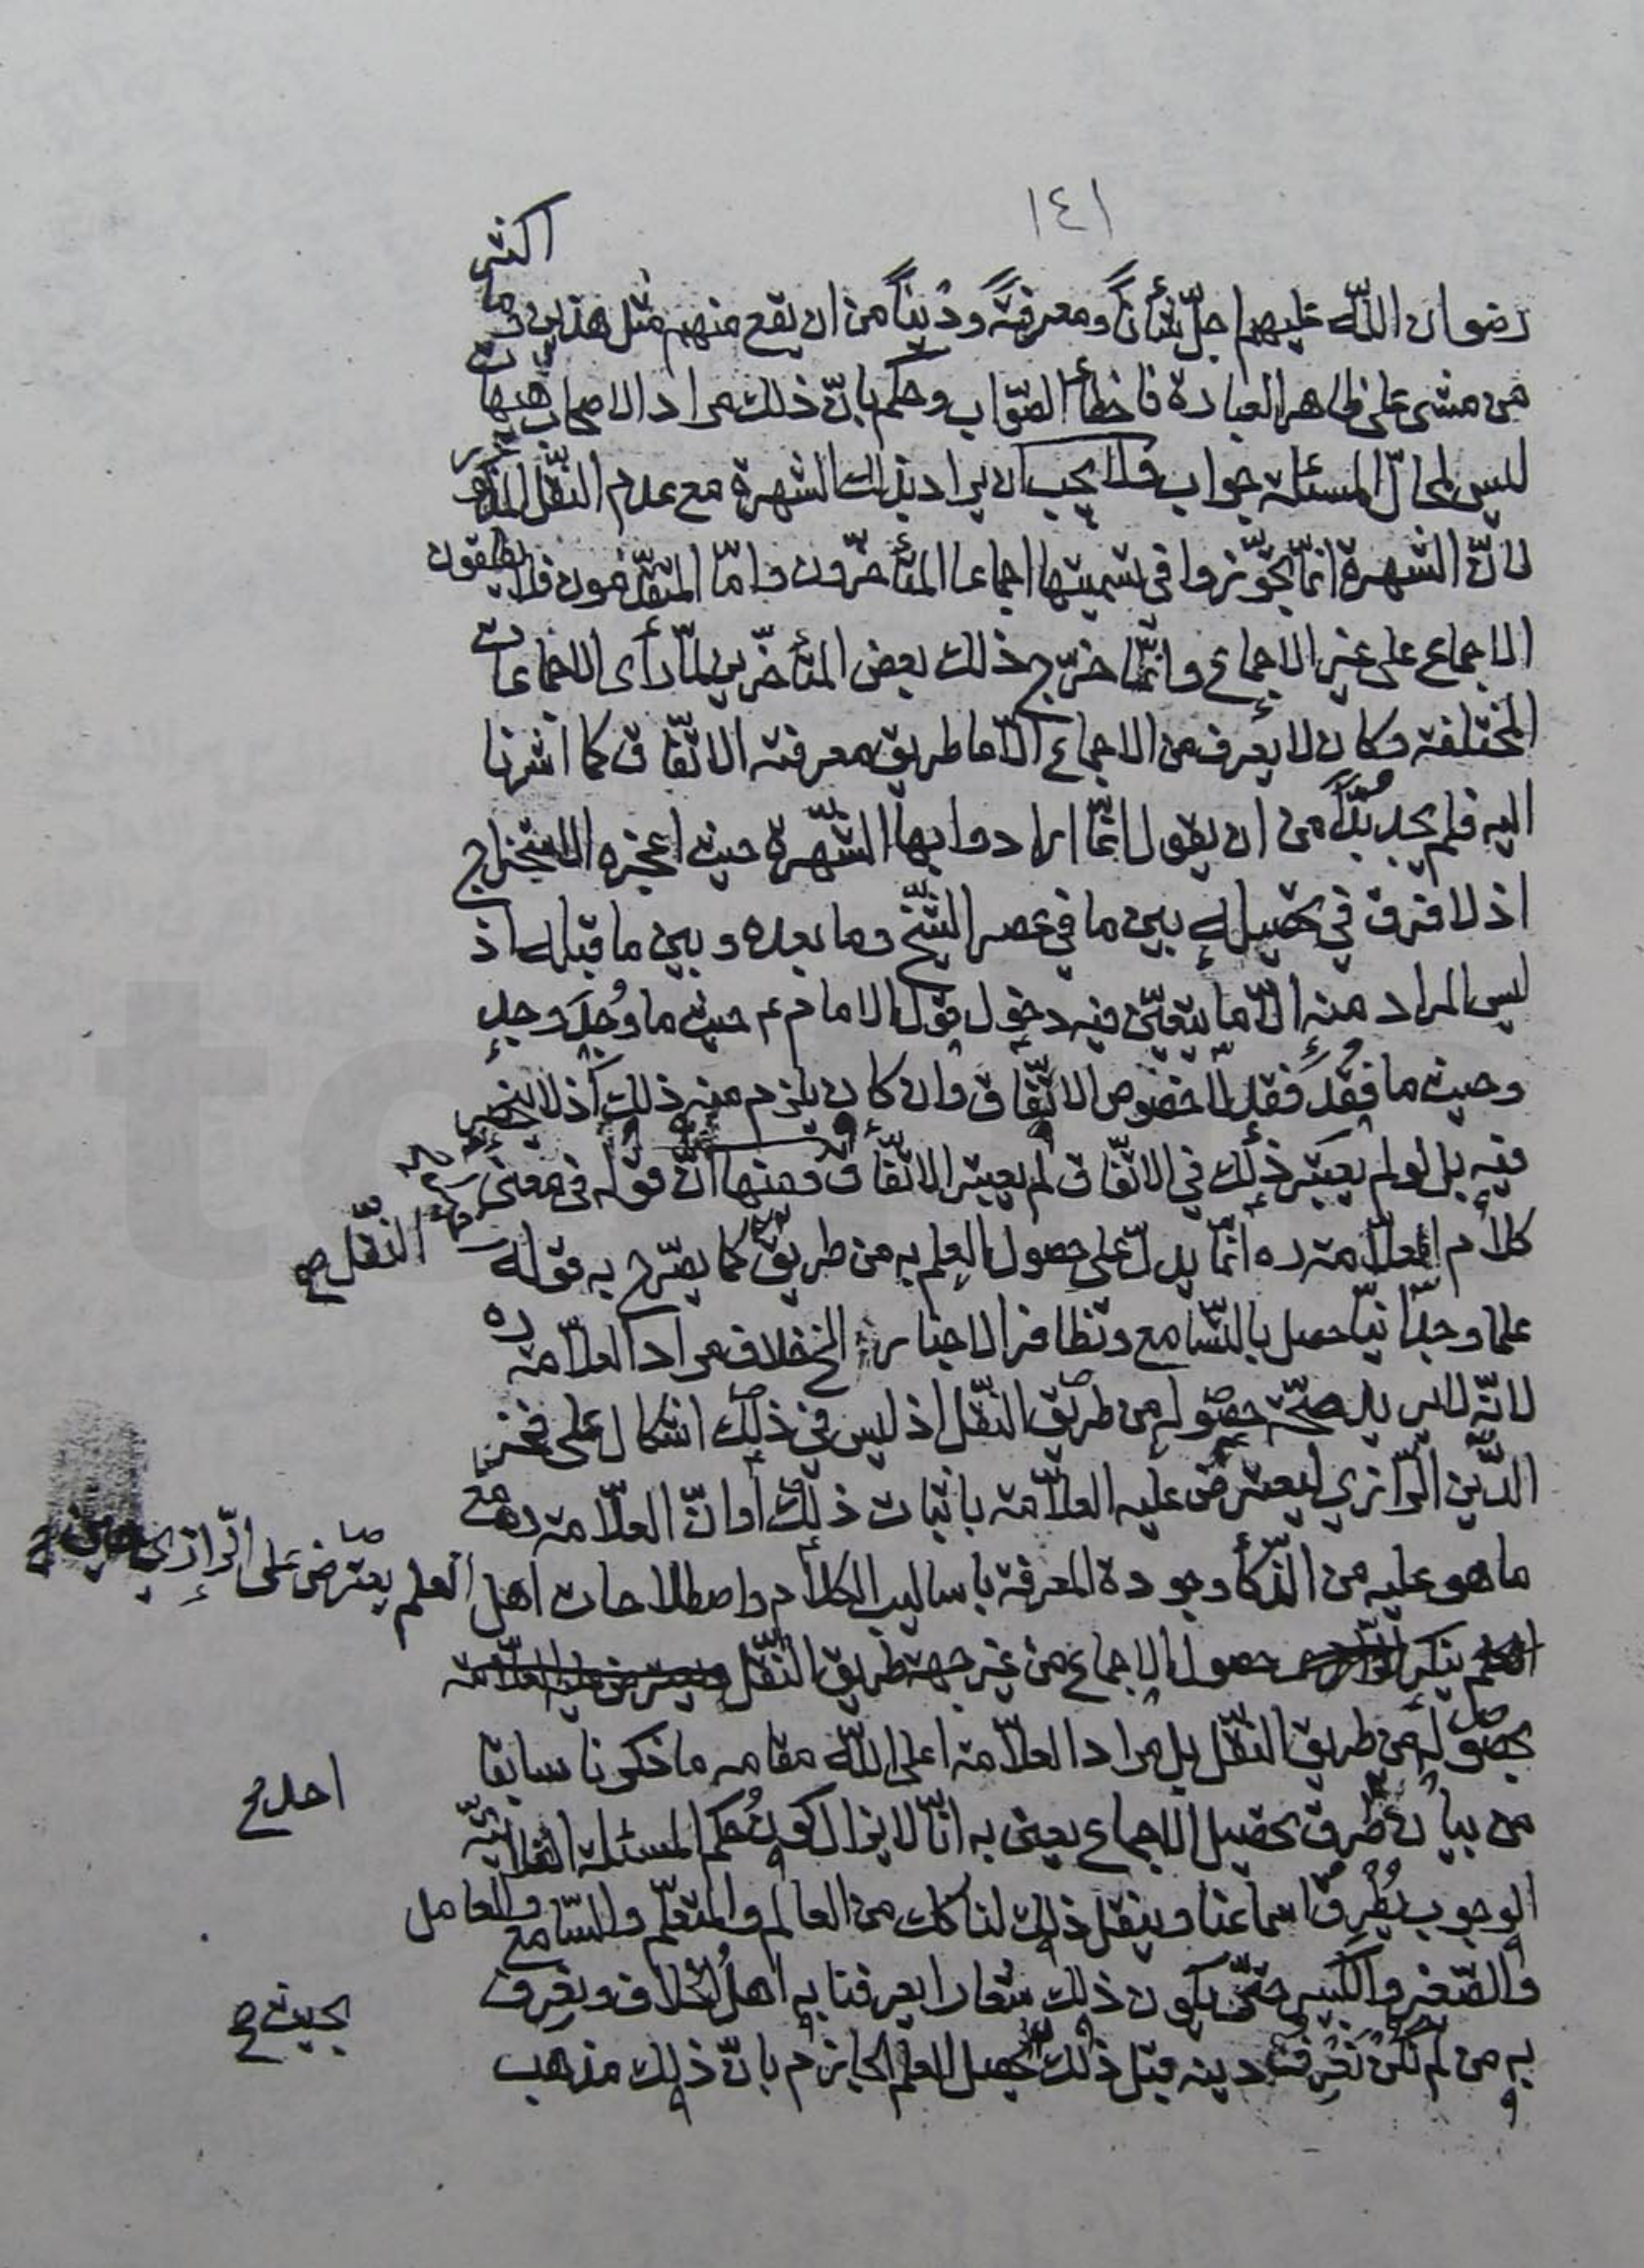 ١٤١
رضوان اللّه عليهم اجلّ شأناً ومعرفةً وديناً من ان يقع منهم مثل هذين وما اكثر
من مشى على ظاهر العبارة فاخطأ الصّواب وحكم بانّ ذلك مراد الاصحاب
ليس لمحلّ المسئلة جواب فلا يجب ان يراد بذلك الشهرة مع عدم النّقل
لانّ الشهرة انّما تجوّزوا في تسميتها اجماعا المتأخّرون وامّا المتقدّمون فلا يطلقون
الاجماع على غير الاجماع وانّما خرّج ذلك بعض المتأخّرين لمّا رأى الاجماعات
المختلفة وكان لا يعرف من الاجماع الّا ما طريق معرفته الاتّفاق كما اشرنا
اليه فلم يجد بُدّاً من ان يقول انّما ارادوا بها الشّهرة حيث اعجزه الاستخراج
اذ لا فرق في تحصيله بين ما في عصر الشّيخ وما بعده وبين ما قبله اذ
ليس المراد منه الّا ما يتعيّن فيه دخول قول الامام ع حيث ما وُجِدَ وجد
وحيث ما فُقِدَ فقد لا خصوص الاتّفاق وان كان يلزم منه ذلك اذ لا ينحصر
فيه بل لو لم يعتبر ذلك في الاتّفاق لم يعتبر الاتّفاق ومنها انّ قوله في معنى
كلام العلّامة ره انّما يدلّ على حصول العلم به من طريق النّقل صح كما يصّرح به قوله
علما وجدانيّا حصل بالتّسامع وتظافر الاخبار الخ خلاف مراد العلّامة ره
لانّه لا يريد صحّة حصوله من طريق النّقل اذ ليس في ذلك اشكال على فخر
الدّين الرّازي ليعترض عليه العلّامة باثبات ذلك او انّ العلّامة ره مع
ما هو عليه من الذّكأ وجودة المعرفة باساليب الكلام واصطلاحات اهل العلم يعترض على الرّازي حين
ينكر حصول الاجماع من غير جهة طريق النّقل
بحصوله من طريق النّقل بل مراد العلّامة اعلى اللّه مقامه ما ذكرنا سابقا
من بيان طرق تحصيل الاجماع يعنى به انّا لا يزال كون حُكم المسئلة الفلانيّة
الوجوب يُطْرِقُ اسماعنا وينقل ذلك لنا كل احد صح من العالم والمتعلّم والسّامع والعامل
والصّغير والكبير حتّى يكون ذلك شعارا يعرفنا به اهلُ الخلاف ونعرف
به من لم نكن نعرف دينه قبل ذلك بحيث صح يحصل العلم الجازم بانّ ذلك مذهب